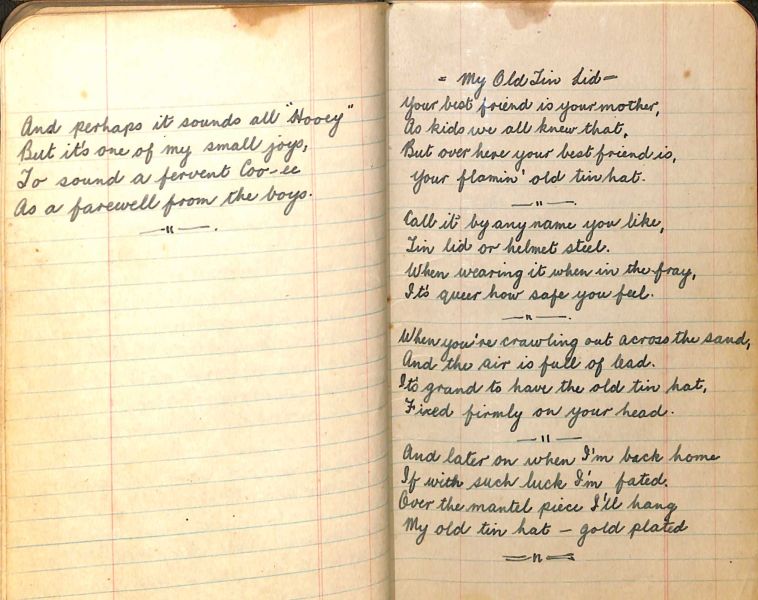 And perhaps it sounds all "Hooey"
But it's one of my small joys,
To sound a fervent Coo-ee
As a farewell from the boys.
—"—.
= My Old Tin Lid =
Your best friend is your mother,
As kids we all knew that,
But over here your best friend is,
Your flamin' old tin hat.
—"—.
Call it by any name you like,
Tin lid or helmet steel.
When wearing it when in the fray,
It's queer how safe you feel.
—"—.
When you're crawling out across the sand,
And the air is full of lead.
It's grand to have the old tin hat,
Fixed firmly on your head.
—"—
And later on when I'm back home
If with such luck I'm fated.
Over the mantel piece I'll hang
My old tin hat – gold plated
="=